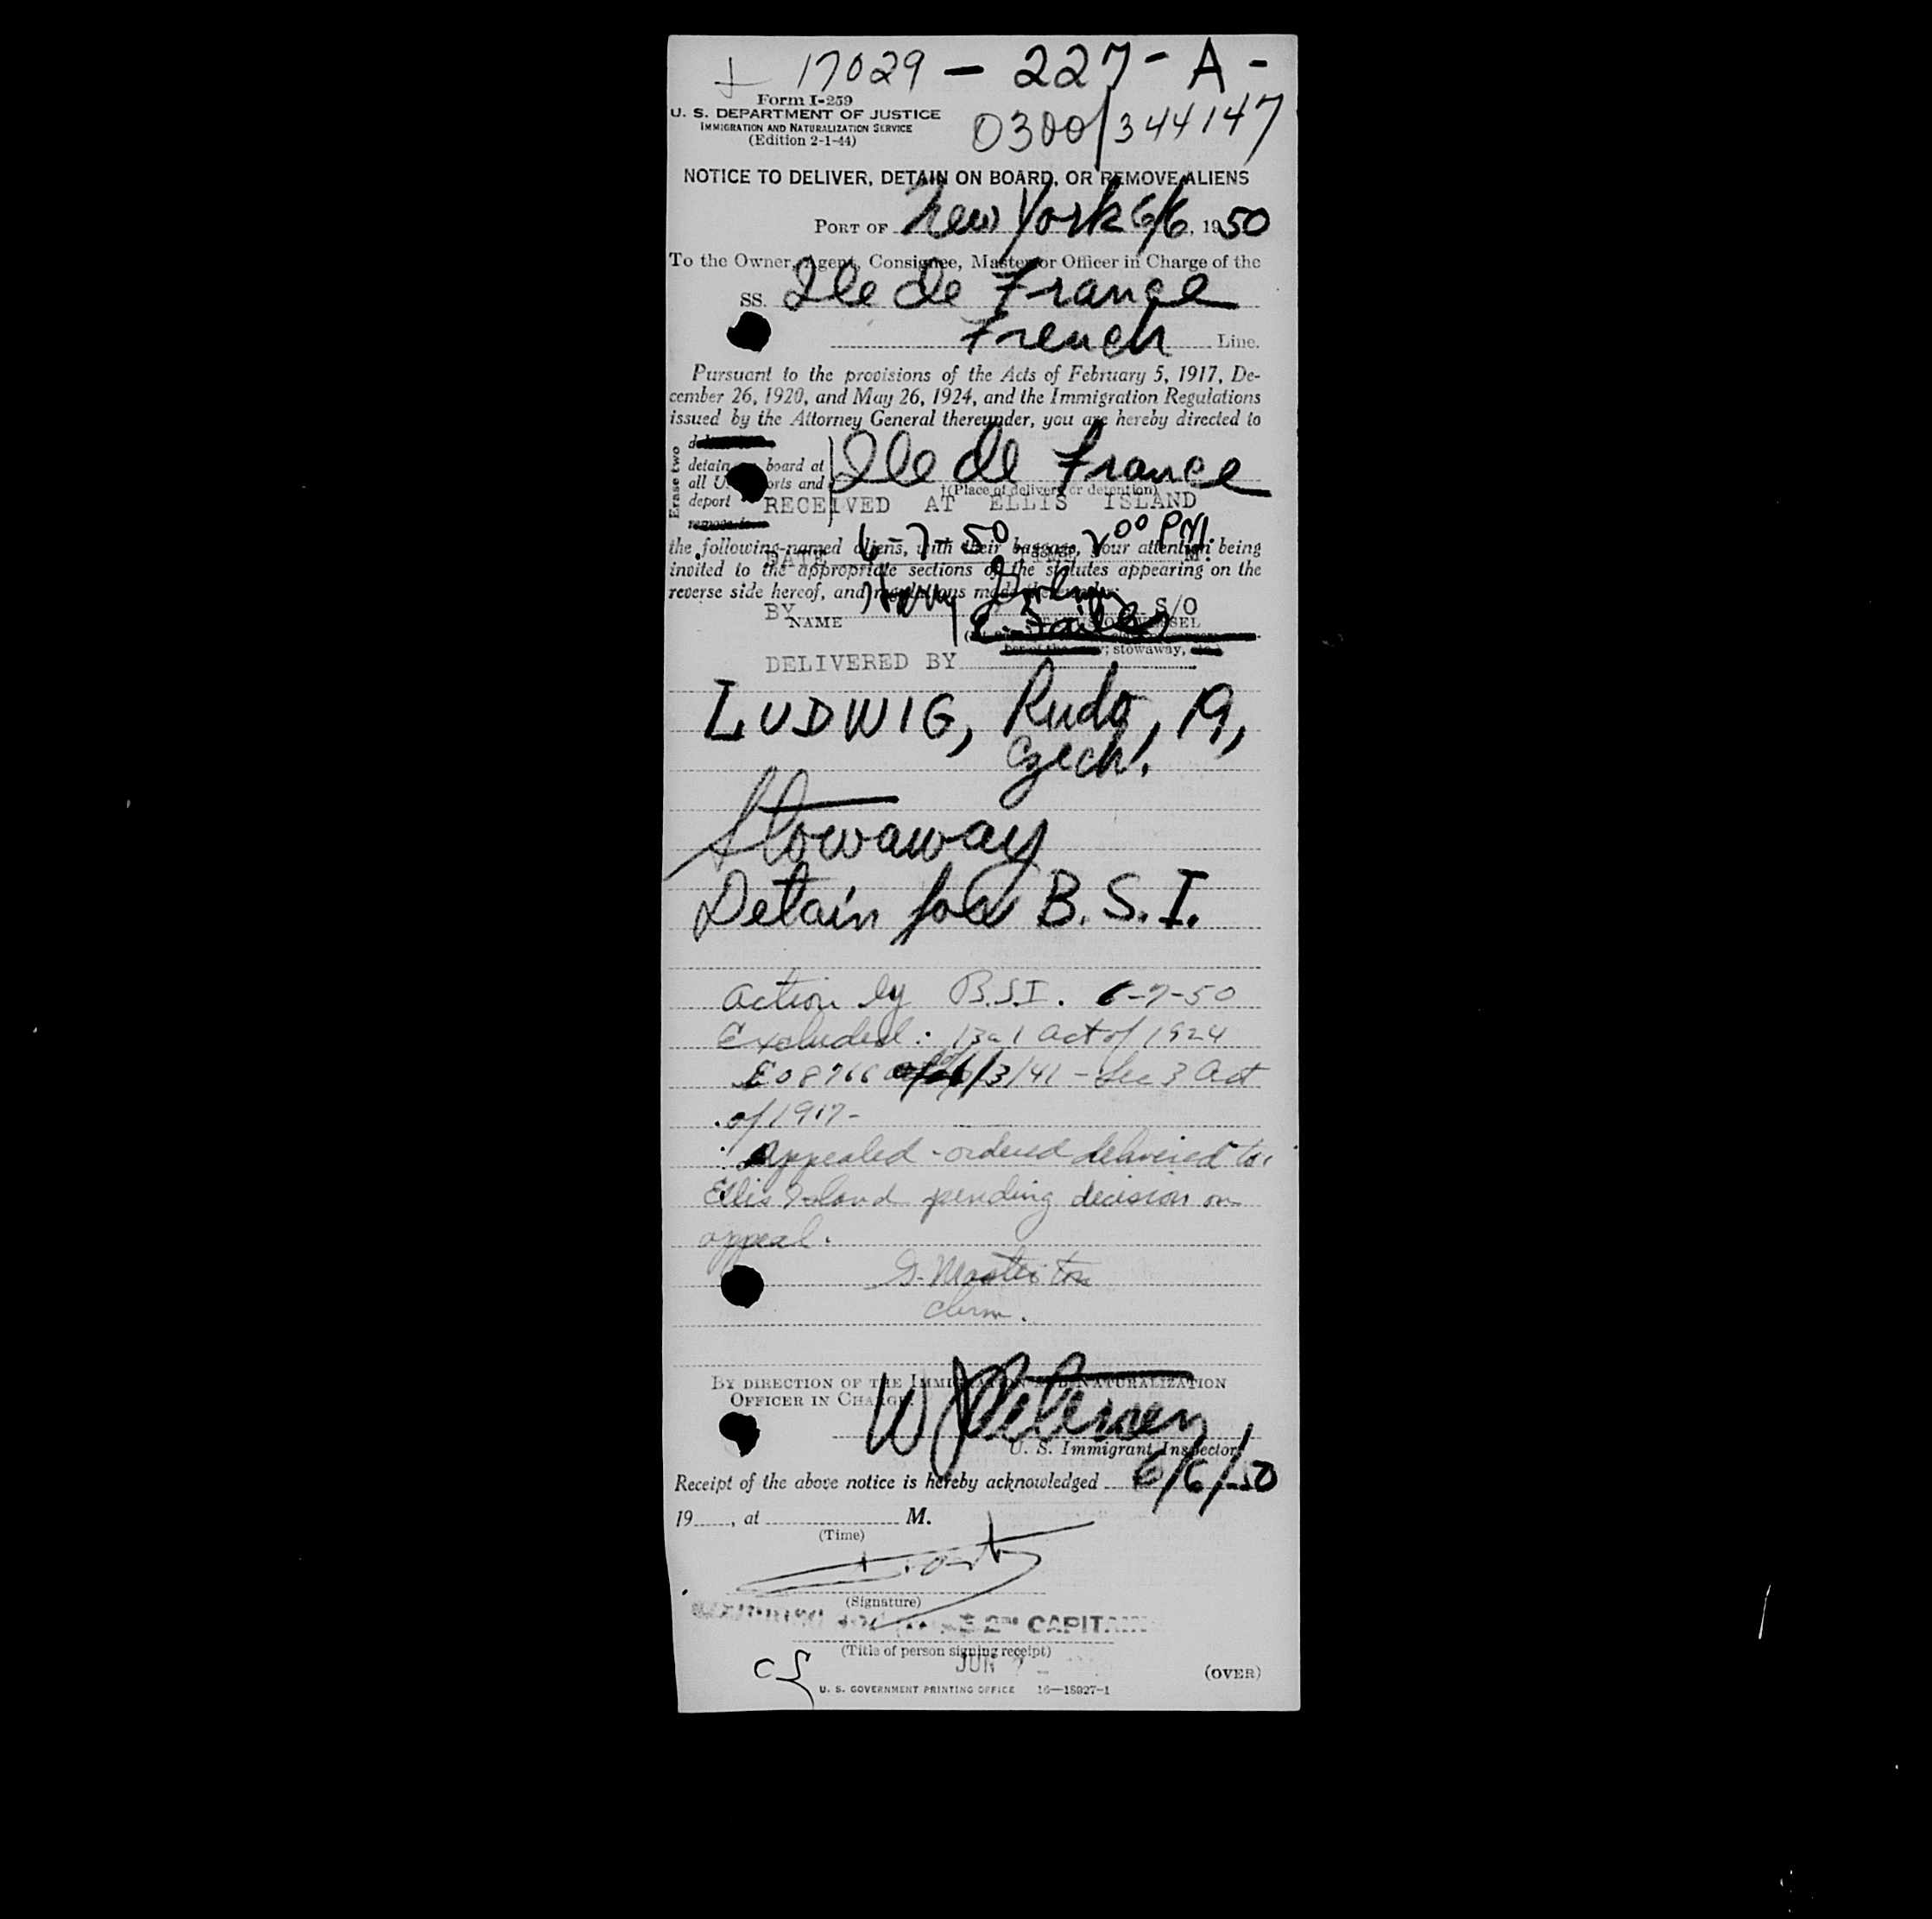 17029 - 227 - A -
Form I-259
U. S. DEPARTMENT OF JUSTICE
IMMIGRATION AND NATURALIZATION SERVICE
(Edition 2-1-44)
0300/344147
NOTICE TO DELIVER, DETAIN ON BOARD, OR REMOVE ALIENS
PORT OF New York 6/6, 1950
To the Owner, Agent, Consignee, Master or Officer in Charge of the
SS. Ile de France
French Line.
Pursuant to the provisions of the Acts of February 5, 1917, De-
cember 26, 1920, and May 26, 1924, and the Immigration Regulations
issued by the Attorney General thereunder, you are hereby directed to
Erase two
detain board at
all U. orts and
deport
Ile de France
†(Place of delivery or detention)
RECEIVED AT ELLIS ISLAND
DATE 6-7-50 200 PM. M.
the following-named aliens, with their baggage, your attention being
invited to the appropriate sections of the statutes appearing on the
reverse side hereof, and regulations made thereunder:
BY Harry S/O
NAME
stowaway,
DELIVERED BY
LUDWIG, Rudo, 19,
Czech.
Stowaway
Detain for B.S.I.
Action by B.S.I. 6-7-50
Excluded: 13a1 Act of 1924
EO 8766 of 6/3/41 - Sec 3 Act
of 1917-
Appealed - ordered delivered to
Ellis Island pending decision on
appeal.
Chrm.
BY DIRECTION OF THE IMMIGRATION AND NATURALIZATION
OFFICER IN CHARGE.
W Petersen
U. S. Immigrant Inspector
Receipt of the above notice is hereby acknowledged 6/6/50
19, at M.
(Time)
(Signature)
2me CAPITAINE
(Title of person signing receipt)
JUN
(OVER)
U. S. GOVERNMENT PRINTING OFFICE 16—18927-1